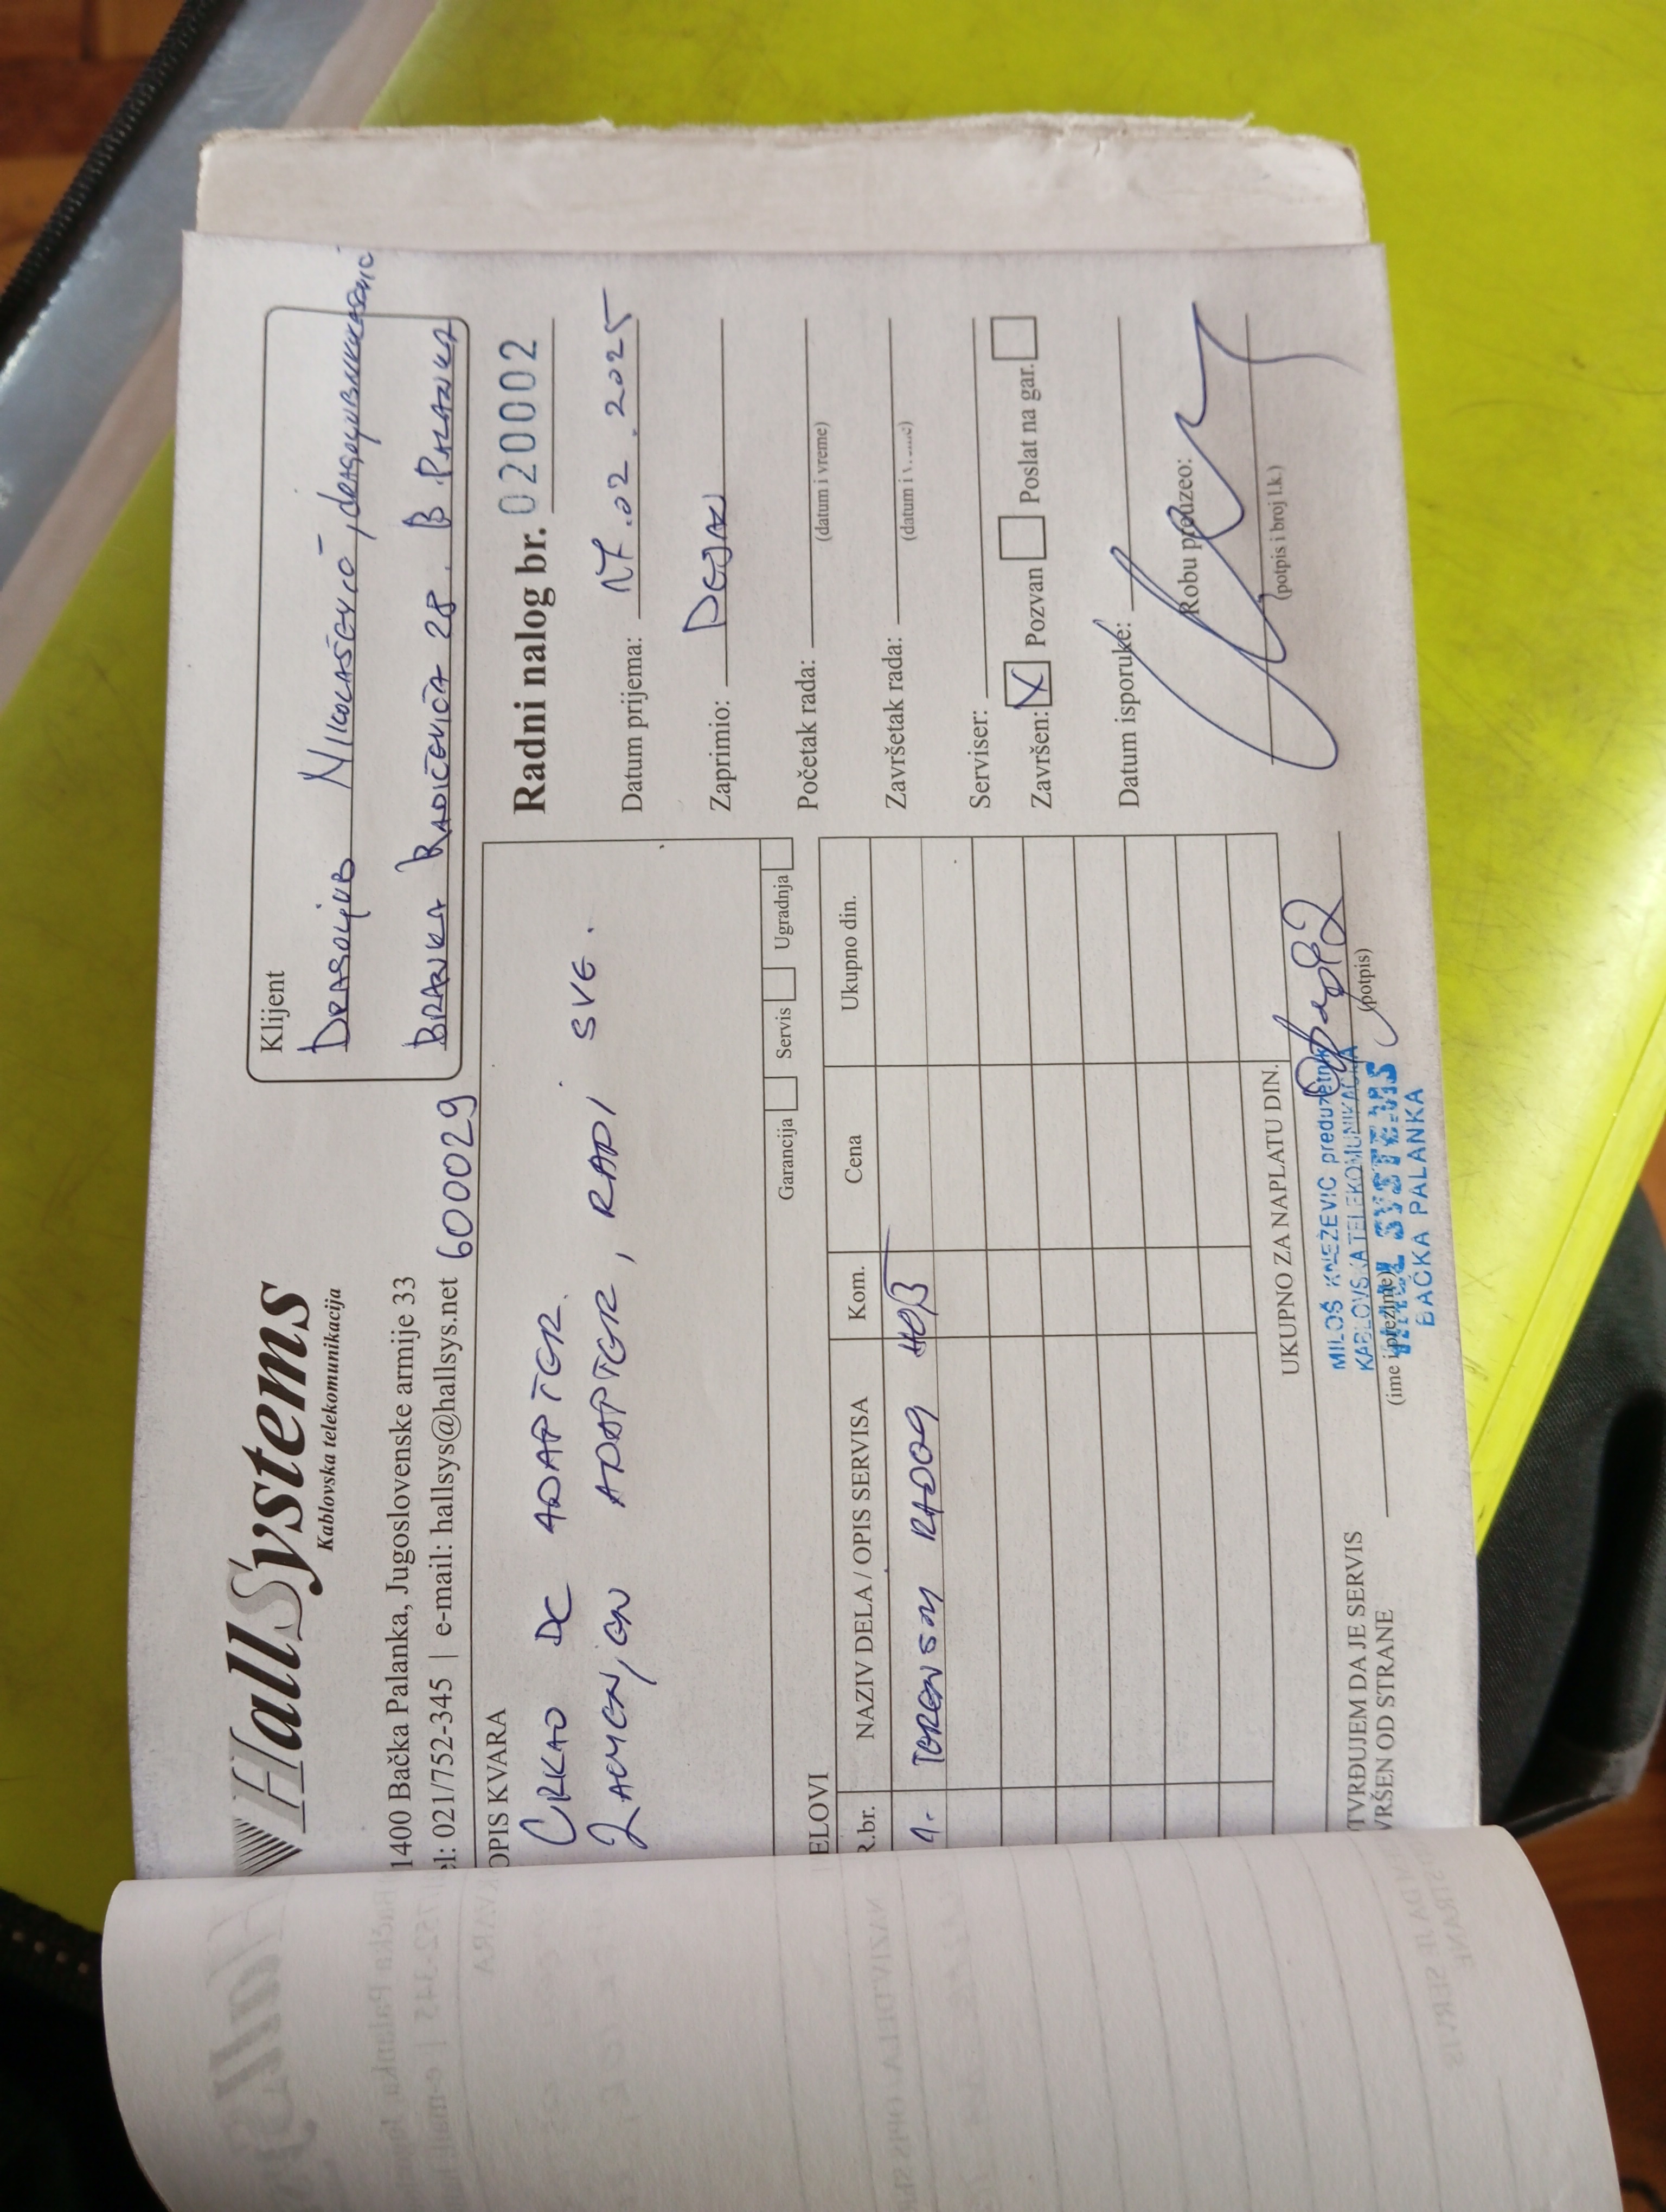 HallSystems
Kablovska telekomunikacija
1400 Bačka Palanka, Jugoslovenske armije 33
el: 021/752-345 | e-mail: hallsys@hallsys.net
600029
Klijent
DRAGOLJUB NIKOLAŠEVIĆ,
BRANKA RADIČEVIĆA 28. B PALANKA
OPIS KVARA
CRKAO DC ADAPTER.
ZAMENJEN ADAPTER, RADI SVE.
Garancija Servis Ugradnja
Radni nalog br. 020002
Datum prijema: 17.02.2025
Zaprimio: DEJAN
Početak rada:
(datum i vreme)
Završetak rada:
(datum i
Serviser:
Završen: X Pozvan Poslat na gar.
Datum isporuke:
Robu preuzeo:
(potpis i broj l.k.)
ELOVI
R.br. NAZIV DELA / OPIS SERVISA Kom. Cena Ukupno din.
1. TERENSKI RADOVI
UKUPNO ZA NAPLATU DIN.
TVRĐUJEM DA JE SERVIS
VRŠEN OD STRANE
(ime i prezime)
(potpis)
MILOŠ KNEŽEVIC preduzetnik
KABLOVSKA TELEKOMUNIKACIJA
HALL SYSTEMS
BAČKA PALANKA